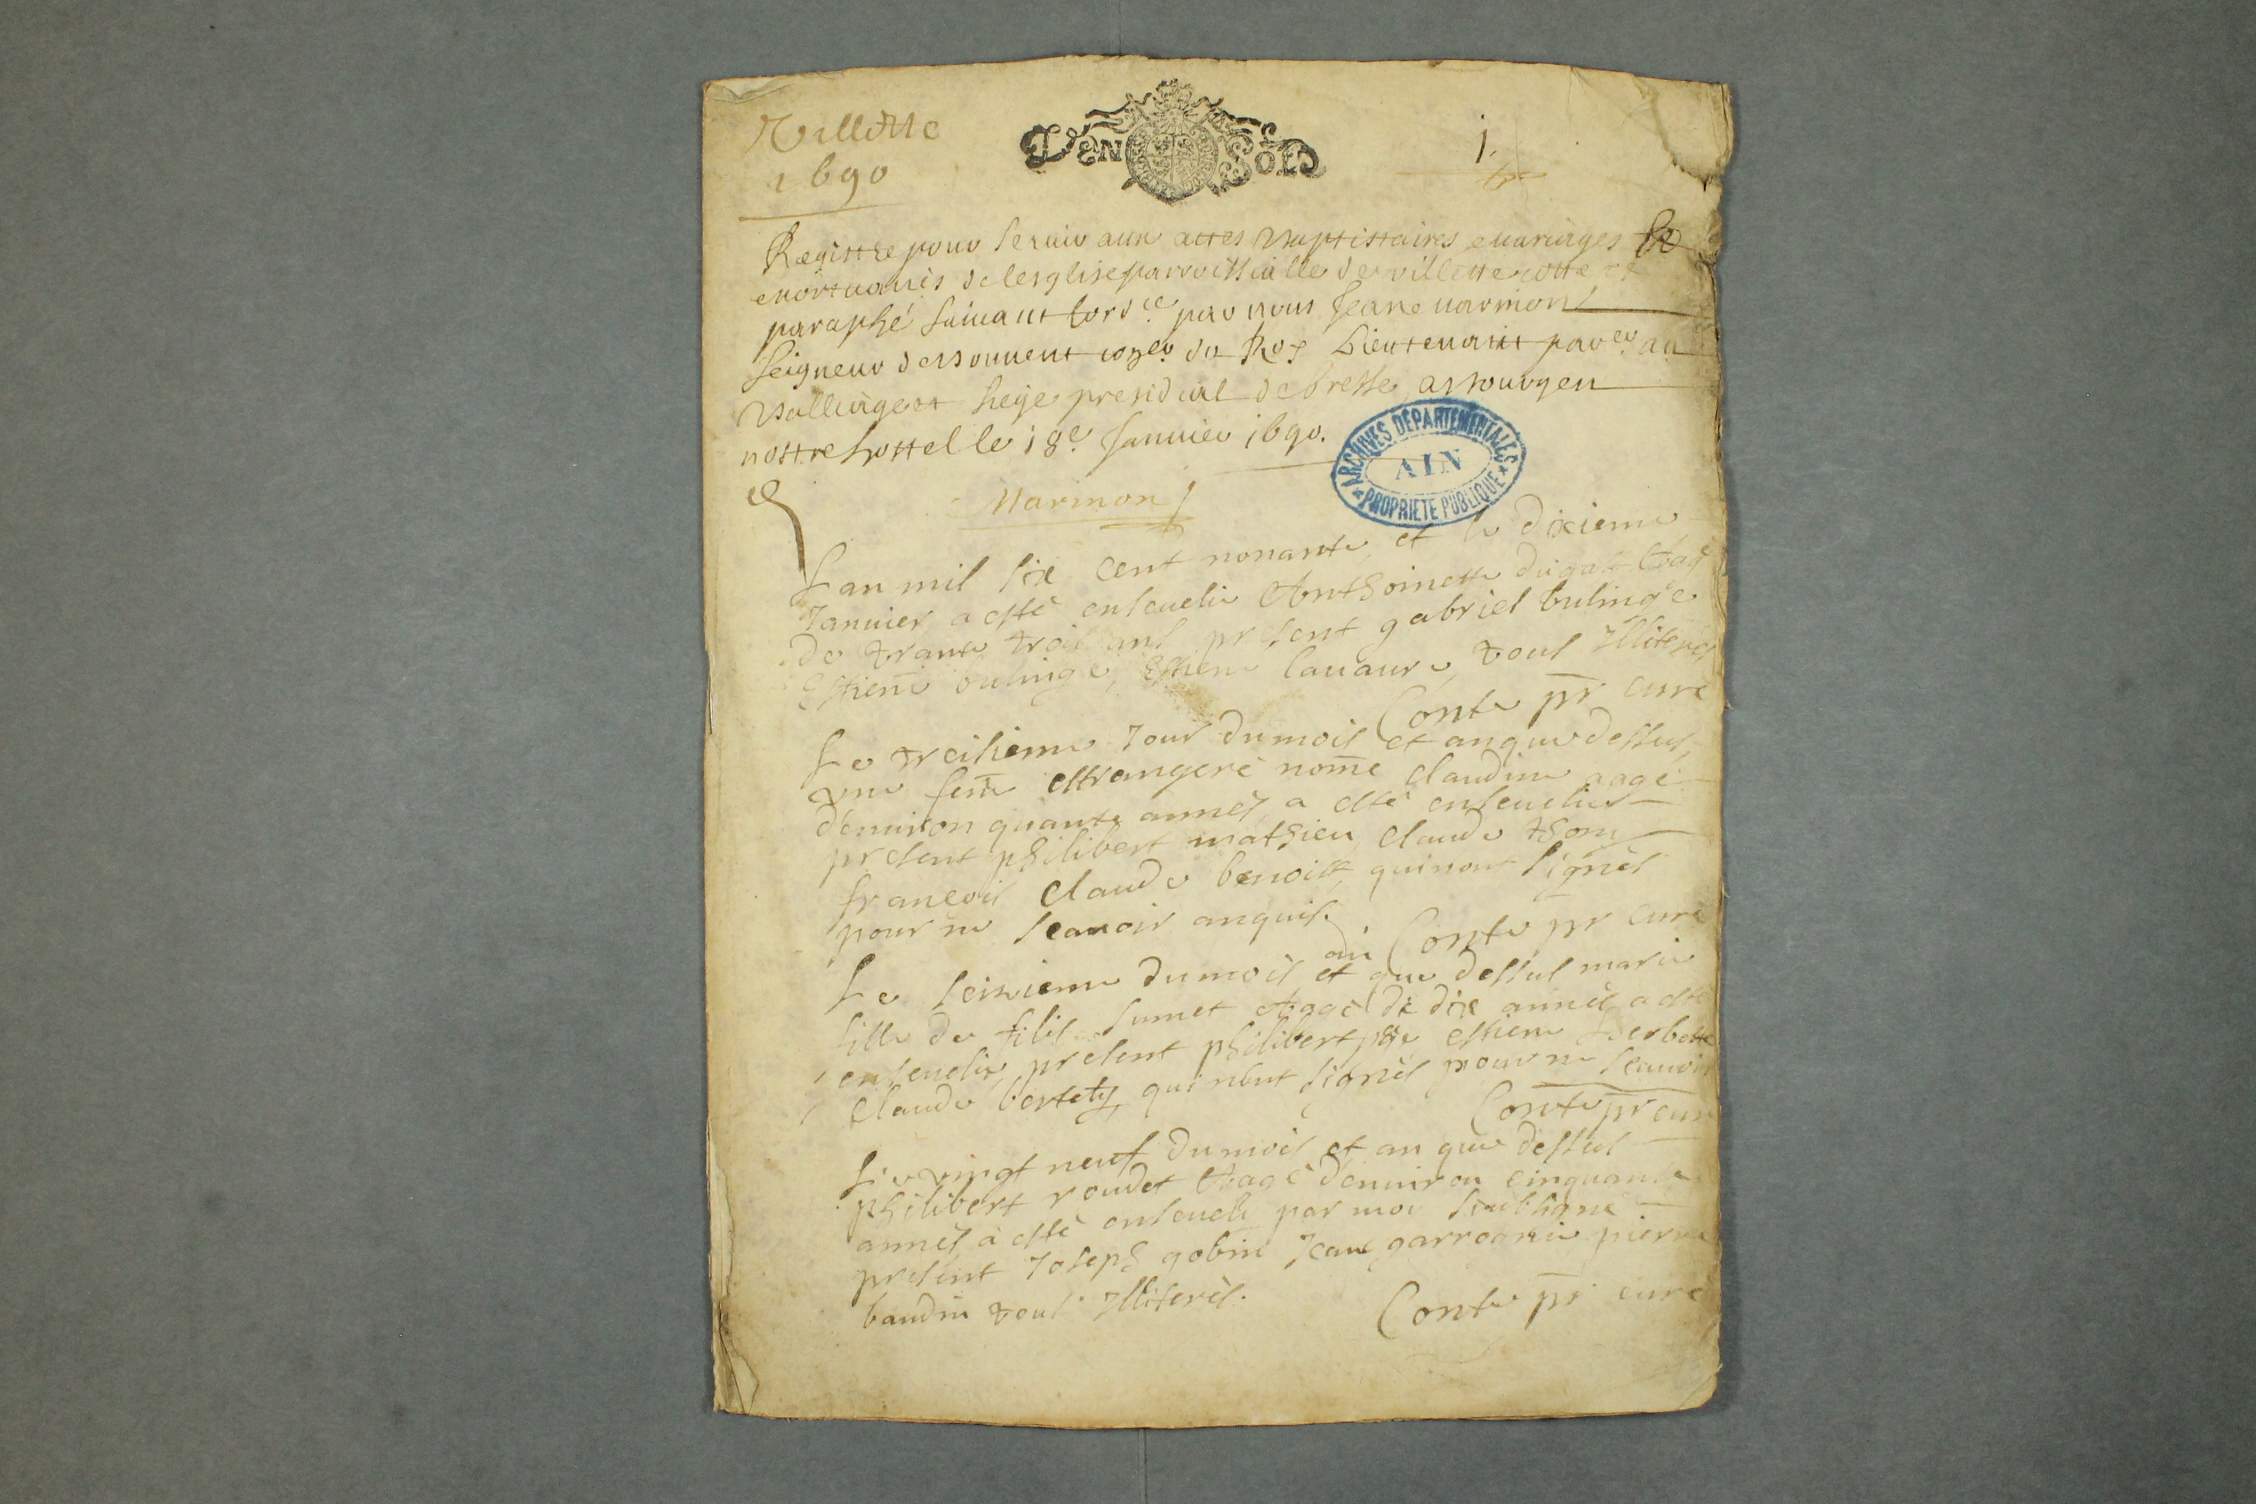 Villette
1690
VN SOL
1.
Registre pour seruir aux actes Baptistaires mariages et
mortuaires de lesglise parroissialle de villette cotté et
paraphé suiuant lord.ce par nous Jean marmont
seigneur de conseiller du Roy Lieutenant par.er au
Balliage et siege presidial de bresse a bourg en
nostre hostel le 18e Januier 1690.
Marmon
Lan mil six cent nonante et le dixieme
Januier a esté enseuelie Anthoinette dugat Aagé
de trante trois ans present gabriel bulinge
Estiene bulinge, Estiene lauaure, tous Illiterés
Conte pr curé
Le treisieme Jour du mois et an que dessus,
vne feme estrangere nomé claudine aagé
d'enuiron quante année, a esté enseuelie
present philibert mathieu claude thom
françois claude benoist, qui nont signés
pour ne scauoir anquis.
Conte pr curé
Le seizieme du mois et an que dessus marie
fille de filis Jumet Aagé de dix année, a esté
enseuelie, present philibert estiene Berbette
claude bertety, qui nont signés pour ne scauoir
Conte pr curé
Le vingt neuf du mois et an que dessus
philibert roudet Aagé d'enuiron cinquante
année, a esté enseueli par moi soubsigné
present Joseph gobin Jean garroderie pierre
baudin tous Illiterés.
Conte pr curé
ARCHIVES DEPARTEMENTALES
AIN
PROPRIETE PUBLIQUE